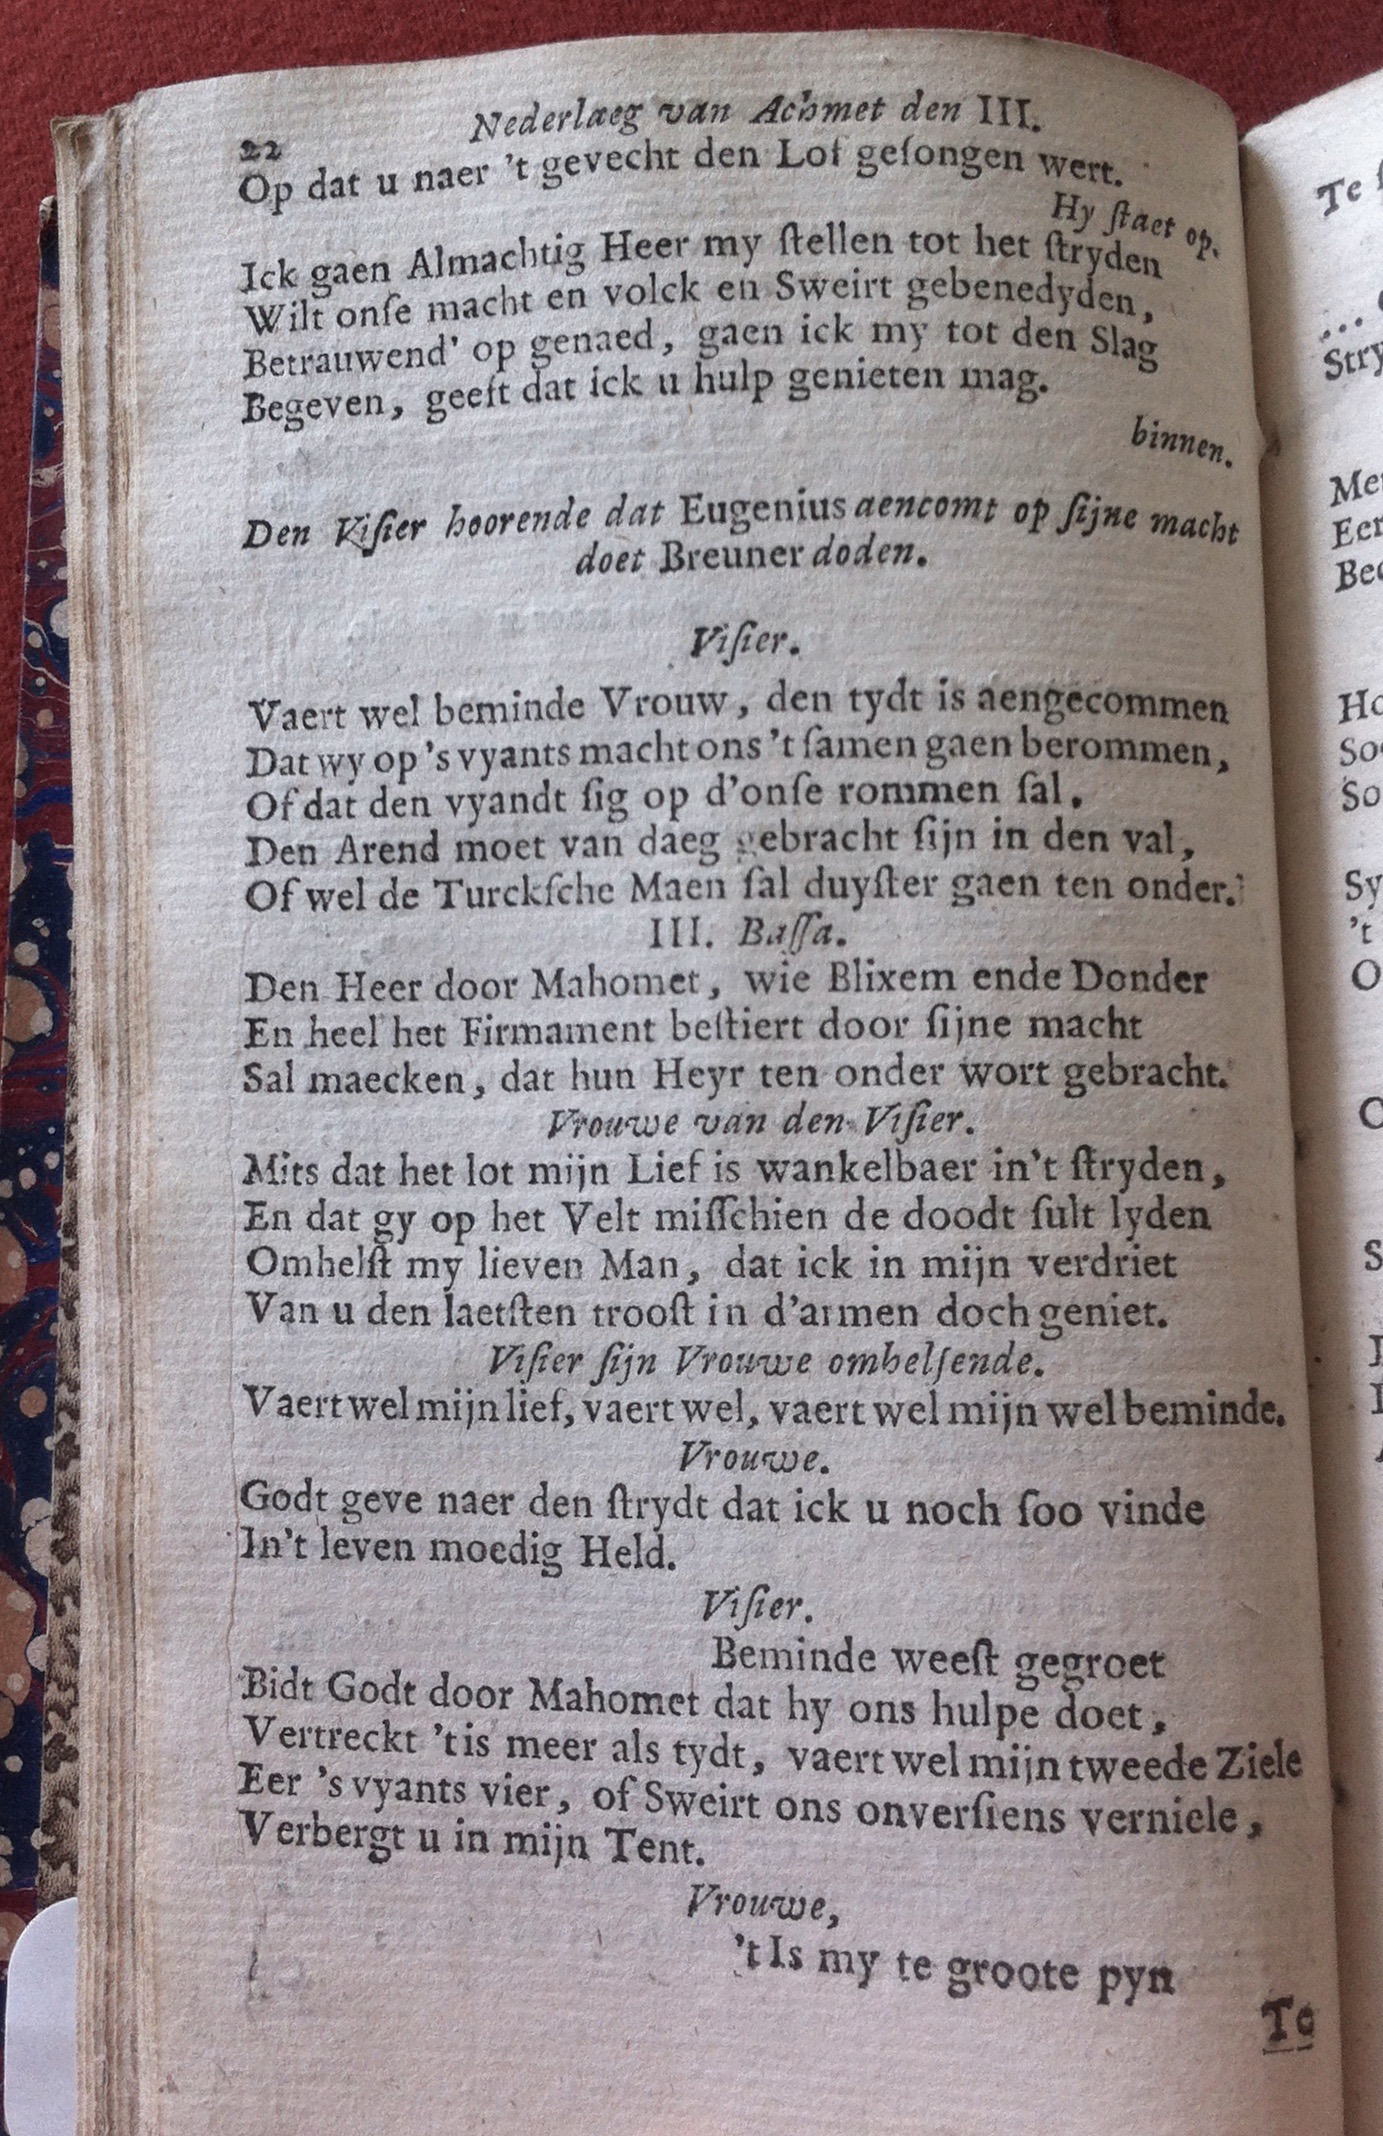 22
Nederlaeg van Achmet den III.
Op dat u naer 't gevecht den Lof geſongen wert.
Hy ſtaet op.
Ick gaen Almachtig Heer my ſtellen tot het ſtryden
Wilt onſe macht en volck en Sweirt gebenedyden,
Betrauwend' op genaed, gaen ick my tot den Slag
Begeven, geeft dat ick u hulp genieten mag.
binnen.
Den Viſier hoorende dat Eugenius aencomt op ſijne macht
doet Breuner doden.
Viſier.
Vaert wel beminde Vrouw, den tydt is aengecommen
Dat wy op 's vyants macht ons 't ſamen gaen berommen,
Of dat den vyandt ſig op d'onſe rommen ſal.
Den Arend moet van daeg gebracht ſijn in den val,
Of wel de Turckſche Maen ſal duyſter gaen ten onder.
III. Baſſa.
Den Heer door Mahomet, wie Blixem ende Donder
En heel het Firmament beſtiert door ſijne macht
Sal maecken, dat hun Heyr ten onder wort gebracht.
Vrouwe van den Viſier.
Mits dat het lot mijn Lief is wankelbaer in't ſtryden,
En dat gy op het Velt miſſchien de doodt ſult lyden
Omhelſt my lieven Man, dat ick in mijn verdriet
Van u den laetſten trooſt in d'armen doch geniet.
Viſier ſijn Vrouwe omhelſende.
Vaert wel mijn lief, vaert wel, vaert wel mijn wel beminde.
Vrouwe.
Godt geve naer den ſtrydt dat ick u noch ſoo vinde
In't leven moedig Held.
Viſier.
Beminde weeſt gegroet
Bidt Godt door Mahomet dat hy ons hulpe doet,
Vertreckt 't is meer als tydt, vaert wel mijn tweede Ziele
Eer 's vyants vier, of Sweirt ons onverſiens verniele,
Verbergt u in mijn Tent.
Vrouwe,
't Is my te groote pyn
To
Te
Stry
Sy
't